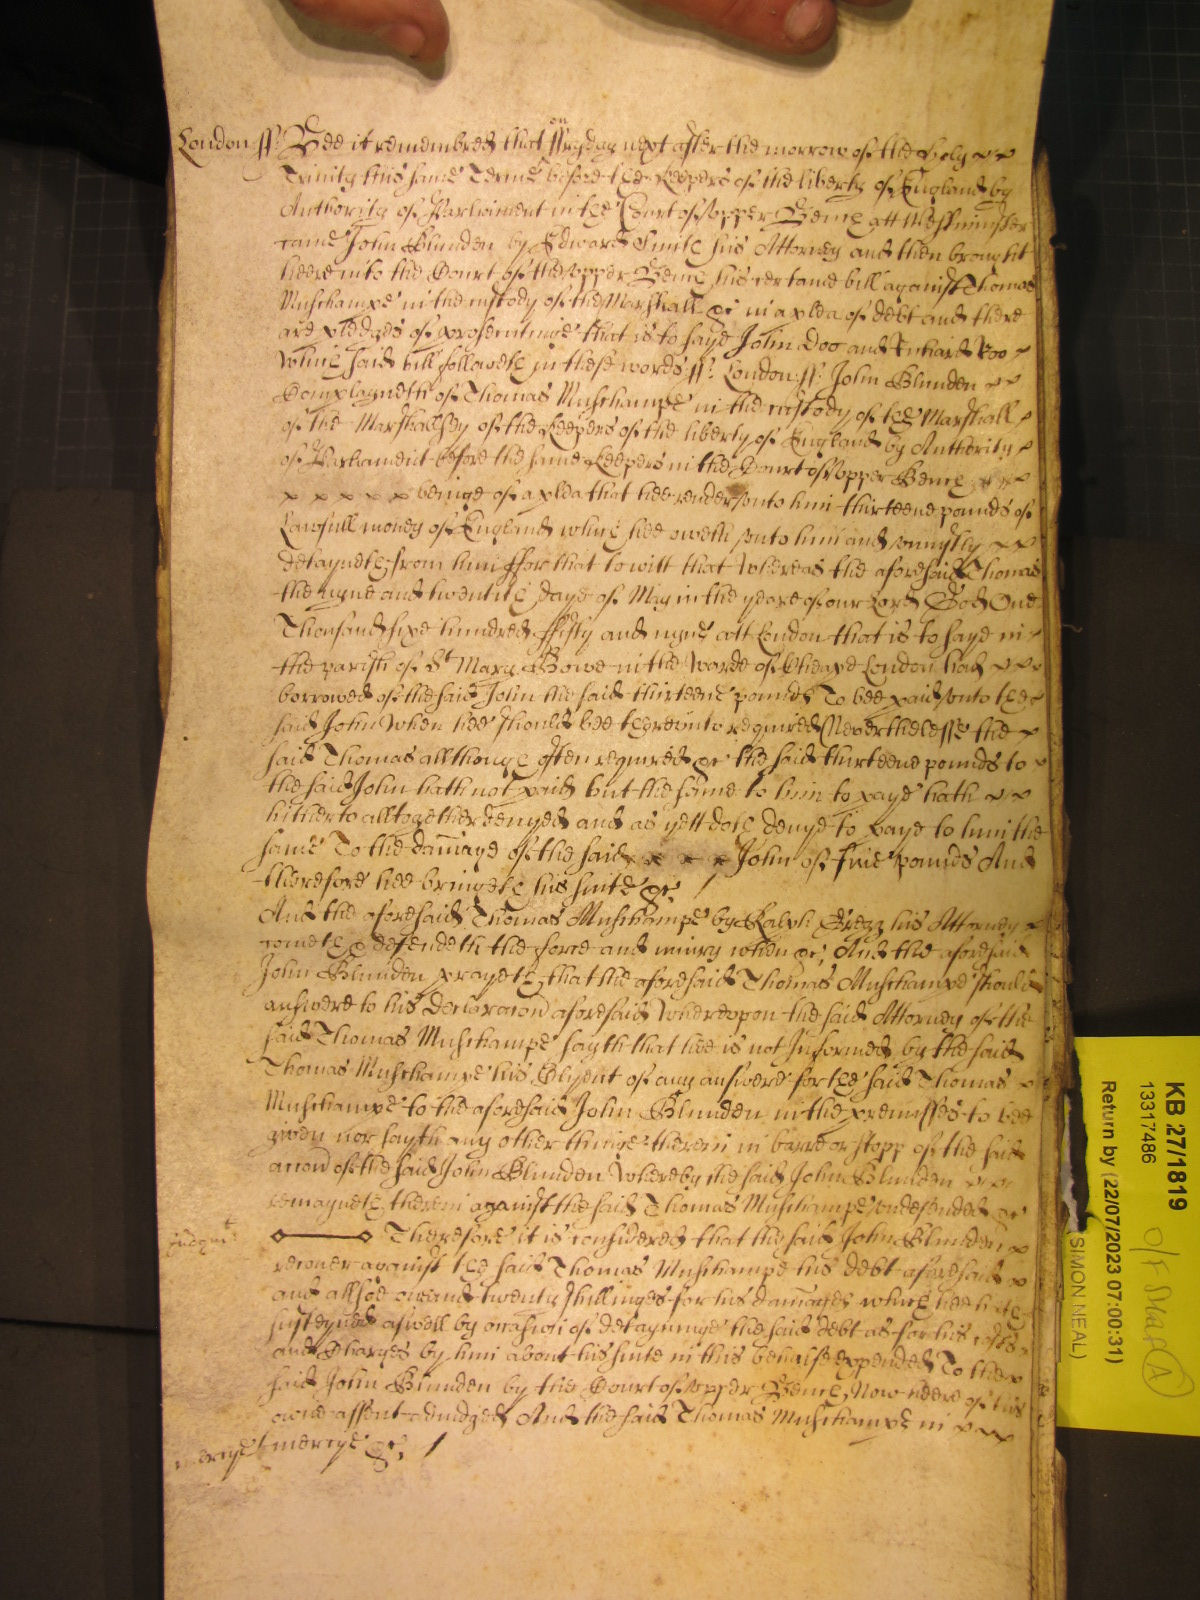 London ss: Bee it remembred that on ffryday next after the morrow of the Holy
Trinity this same Terme before the Keepers of the liberty of England by
Authority of Parliament in the Court of Upper Bench att Westminster
came John Blunden by Edward Smith his Attorney and then brought
heere into the Court of the Upper Bench his certaine bill against Thomas
Muschampe in the custody of the Marshall &c in a plea of debt and there
are pledges of prosecutinge that is to saye John Doo and Richard Roo
Which said bill followeth in these words ss: London ss: John Blunden
Complayneth of Thomas Muschampe in the custody of the Marshall
of the Marshallsey of the Keepers of the liberty of England by Authority
of Parliament before the same Keepers in the Court of Upper Bench
x x x x x beinge of a plea that hee render unto him thirteene pounds of
Lawfull money of England which hee oweth unto him and uniustly
detayneth from him ffor that to witt that Whereas the aforesaid Thomas
the nyne and twentith daye of May in the yeare of our Lord God One
Thousand sixe hundred ffifty and nyne att London that is to saye in
the parish of St Mary Bowe in the Warde of Cheape London had
borrowed of the said John the said thirteene pounds To bee paid unto the
said John When hee should bee thereunto required Neverthelesse the
said Thomas allthough often required &c the said thirteene pounds to
the said John hath not paid but the same to him to paye hath
hitherto alltogether denyed and as yett doth denye to paye to him the
same To the damage of the said x x x John of five pounds And
therefore hee bringeth his suite &c
And the aforesaid Thomas Muschampe by Ralph Gregg his Attorney
cometh & defendeth the force and iniury when &c And the aforesaid
John Blunden prayeth that the aforesaid Thomas Muschampe should
answere to his Declaracion aforesaid Whereuppon the said Attorney of the
said Thomas Muschampe sayth that hee is not Informed by the said
Thomas Muschampe his Clyent of any answere for the said Thomas
Muschampe to the aforesaid John Blunden in the premisses to bee
given nor sayth any other thinge therein in barre or stopp of the said
accion of the said John Blunden Whereby the said John Blunden
remayneth therein against the said Thomas Muschampe undefended &c
judgmt Therefore it is considered that the said John Blunden
recover against the said Thomas Muschampe his debt aforesaid
and allsoe twenty shillinges for his damages which hee hath
susteyned aswell by occasion of detayninge the said debt as for his costs
and Charges by him about his suite in this behalfe expended To the
said John Blunden by the Court of Upper Bench Now heere of his
owne assent adiudged And the said Thomas Muschampe in
mercye mercye &c
KB 27/1819
13317486
Return by (22/07/2023 07:00:31)
SIMON NEAL)
O/F Staff (A)